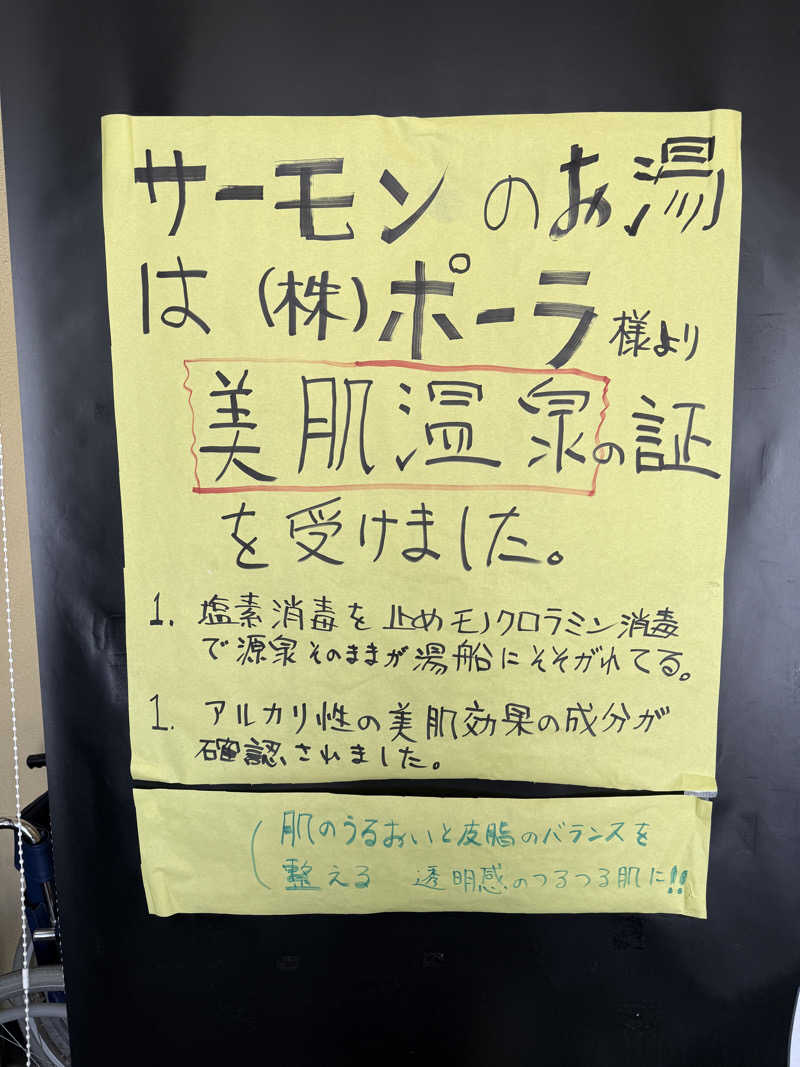 サーモンのお湯
は(株)ポーラ様より
美肌温泉の証
を受けました。
1. 塩素消毒を止めモノクロラミン消毒
で源泉そのままが湯船にそそがれてる。
1. アルカリ性の美肌効果の成分が
確認されました。
(肌のうるおいと皮脂のバランスを
整える 透明感のつるつる肌に!!